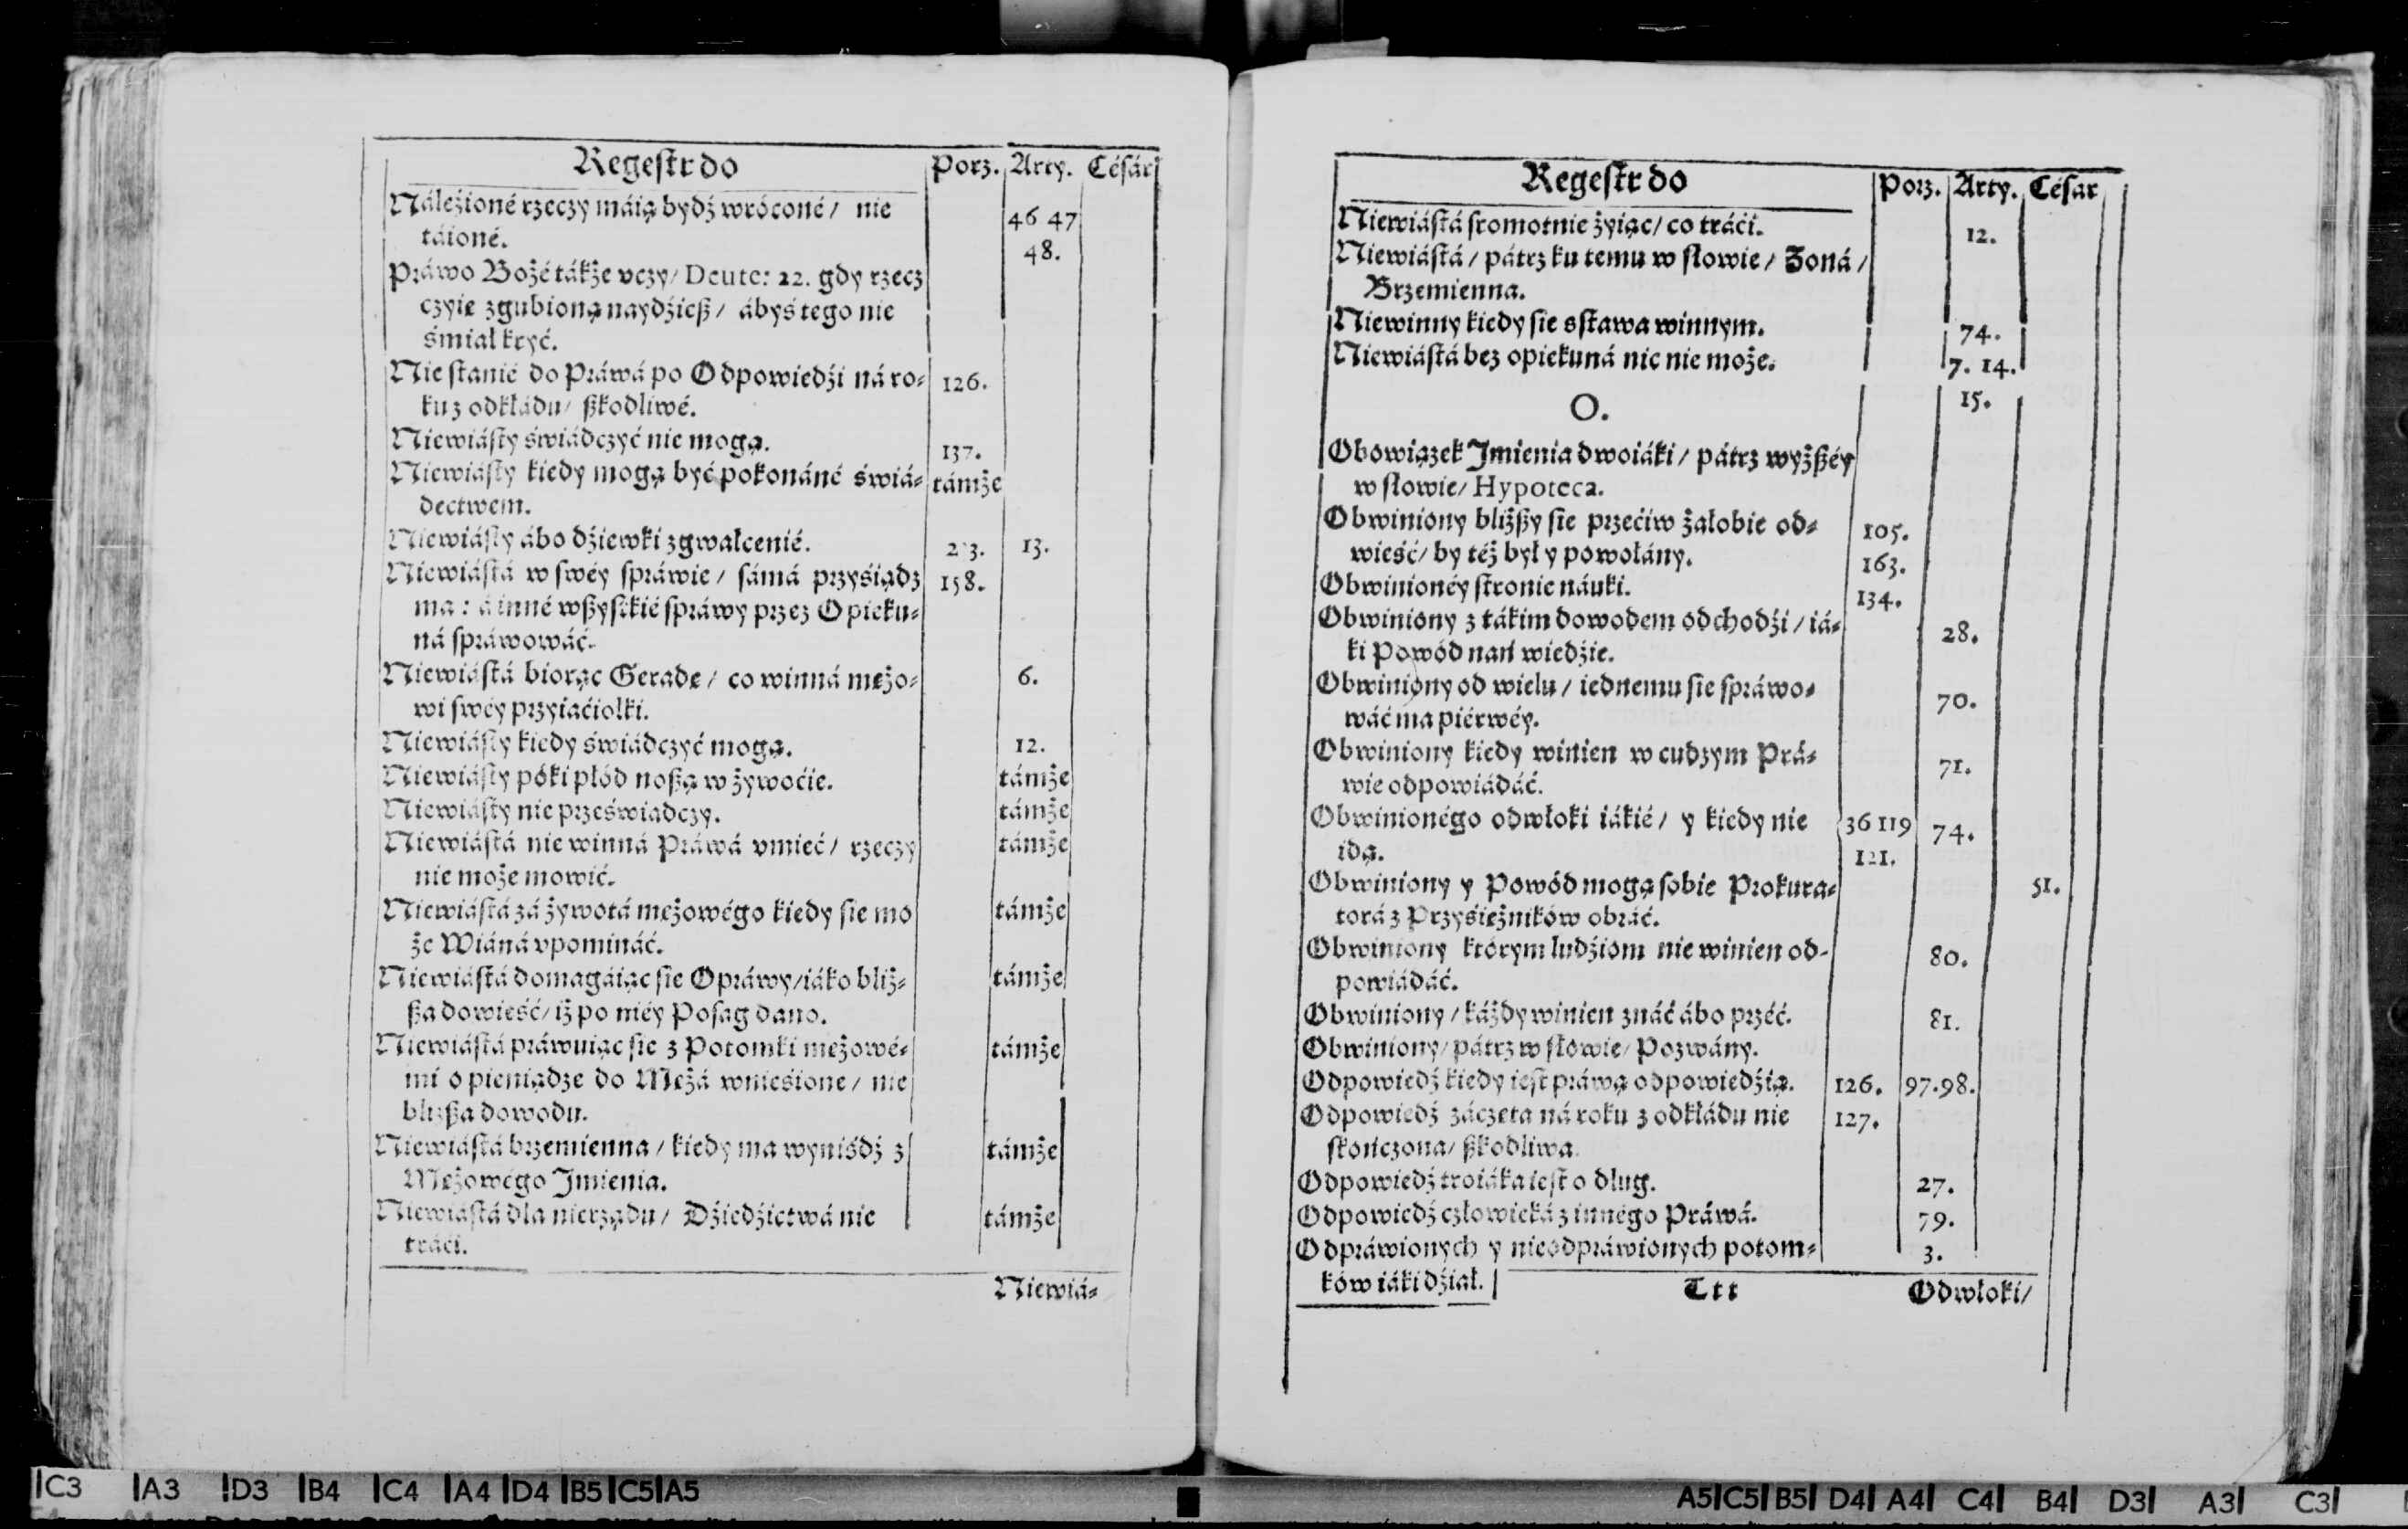 Regeſtr do Porz. Arty. Céſár
Náleźioné rzeczy máią bydź wróconé / nie 46 47
táioné. 48.
Práwo Bożé tákże vczy / Deute: 22. gdy rzecz
czyię zgubioną naydźieſz / ábyś tego nie
śmiał kryć.
Nie ſtanié do Práwá po Odpowiedźi ná ro⸗ 126.
ku z odkłádu / ſzkodliwé.
Niewiáſty świádczyć nie mogą. 137.
Niewiáſty kiedy mogą być pokonáné świá⸗ támże
dectwem.
Niewiáſty ábo dźiewki zgwałcenié. 13.
Niewiáſtá w ſwéy ſpráwie / ſámá przyśiądz 158.
ma : á inné wſzyſtkié ſpráwy przez Opieku⸗
ná ſpráwowáć.
Niewiáſtá biorąc Geradę / co winná mężo⸗ 6.
wi ſwéy przyiaćiołki.
Niewiáſty kiedy świádczyć mogą. 12.
Niewiáſty póki płód noſzą w żywoćie. támże
Niewiáſty nie przeświadczy. támże
Niewiáſtá nie winná Práwá vmieć / rzeczy támże
nie może mowić.
Niewiáſtá zá żywotá mężowégo kiedy ſie mo támże
że Wiáná vpomináć.
Niewiáſtá domagáiąc ſie Opráwy / iáko bliż⸗ támże
ſza dowieść / iż po niéy Poſag dano.
Niewiáſtá práwuiąc ſie z Potomki mężowé⸗ támże
mi o pieniądze do Mężá wnieśione / nie
bliżſza dowodu.
Niewiáſtá brzemienna / kiedy ma wyniśdź z támże
Mężowégo Jmienia.
Niewiáſtá dla nierządu / Dźiedźictwá nie támże
tráći.
Niewiá⸗
Regeſtr do Porz. Arty. Céſar
Niewiáſtá ſromotnie żyiąc / co tráći. 12.
Niewiáſtá / pátrz ku temu w ſłowie / Żoná /
Brzemienna.
Niewinny kiedy ſie sſtawa winnym. 74.
Niewiáſtá bez opiekuná nic nie może. 7. 14.
O. 15.
Obowiązek Jmienia dwoiáki / pátrz wyżſzéy
w ſłowie / Hypoteca.
Obwiniony bliżſzy ſie przećiw żałobie od⸗ 105.
wieść / by téż był y powołány. 163.
Obwinionéy ſtronie náuki. 134.
Obwiniony z tákim dowodem odchodźi / iá⸗ 28.
ki Powód nań wiedźie.
Obwiniony od wielu / iednemu ſie ſpráwo⸗ 70.
wáć ma piérwéy.
Obwiniony kiedy winien w cudzym Prá⸗ 71.
wie odpowiádáć.
Obwinionégo odwłoki iákié / y kiedy nie 36 119 74.
idą. 121.
Obwiniony y Powód mogą ſobie Prokura⸗ 51.
torá z Przyśiężników obráć.
Obwiniony którym ludźióm nie winien od⸗ 80.
powiádáć.
Obwiniony / káżdy winien znáć ábo przéć. 81.
Obwiniony / pátrz w ſłowie / Pozwány.
Odpowiedź kiedy ieſt práwą odpowiedźią. 126. 97.98.
Odpowiedź záczęta ná roku z odkłádu nie 127.
ſkończona / ſzkodliwa.
Odpowiedź troiáka ieſt o dług. 27.
Odpowiedź człowieká z innégo Práwá. 79.
Odpráwionych y nieodpráwionych potom⸗ 3.
ków iáki dźiał. Ttt Odwłoki /
C3 A3 D3 B4 C4 A4 D4 B5 C5 A5
A5 C5 B5 D4 A4 C4 B4 D3 A3 C3